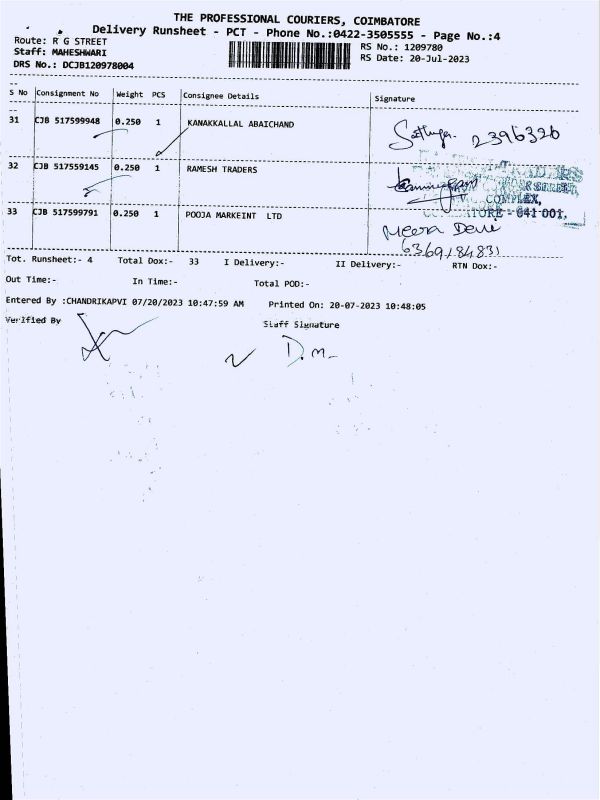 THE PROFESSIONAL COURIERS, COIMBATORE
Delivery Runsheet - PCT - Phone No.:0422-3505555 - Page No.:4
Route: R G STREET
RS No.: 1209780
Staff: MAHESHWARI
RS Date: 20-Jul-2023
DRS No.: DCJB120978004
S No Consignment No Weight PCS Consignee Details Signature
31 CJB 517599948 0.250 1 KANAKKALLAL ABAICHAND
2396326
32 CJB 517559145 0.250 1 RAMESH TRADERS
COMPLEX,
COIMBATORE - 641 001.
33 CJB 517599791 0.250 1 POOJA MARKEINT LTD
Meera Devi
6369184831
Tot. Runsheet:- 4 Total Dox:- 33 I Delivery:- II Delivery:- RTN Dox:-
Out Time:- In Time:- Total POD:-
Entered By :CHANDRIKAPVI 07/20/2023 10:47:59 AM Printed On: 20-07-2023 10:48:05
Verified By
Staff Signature
D.m